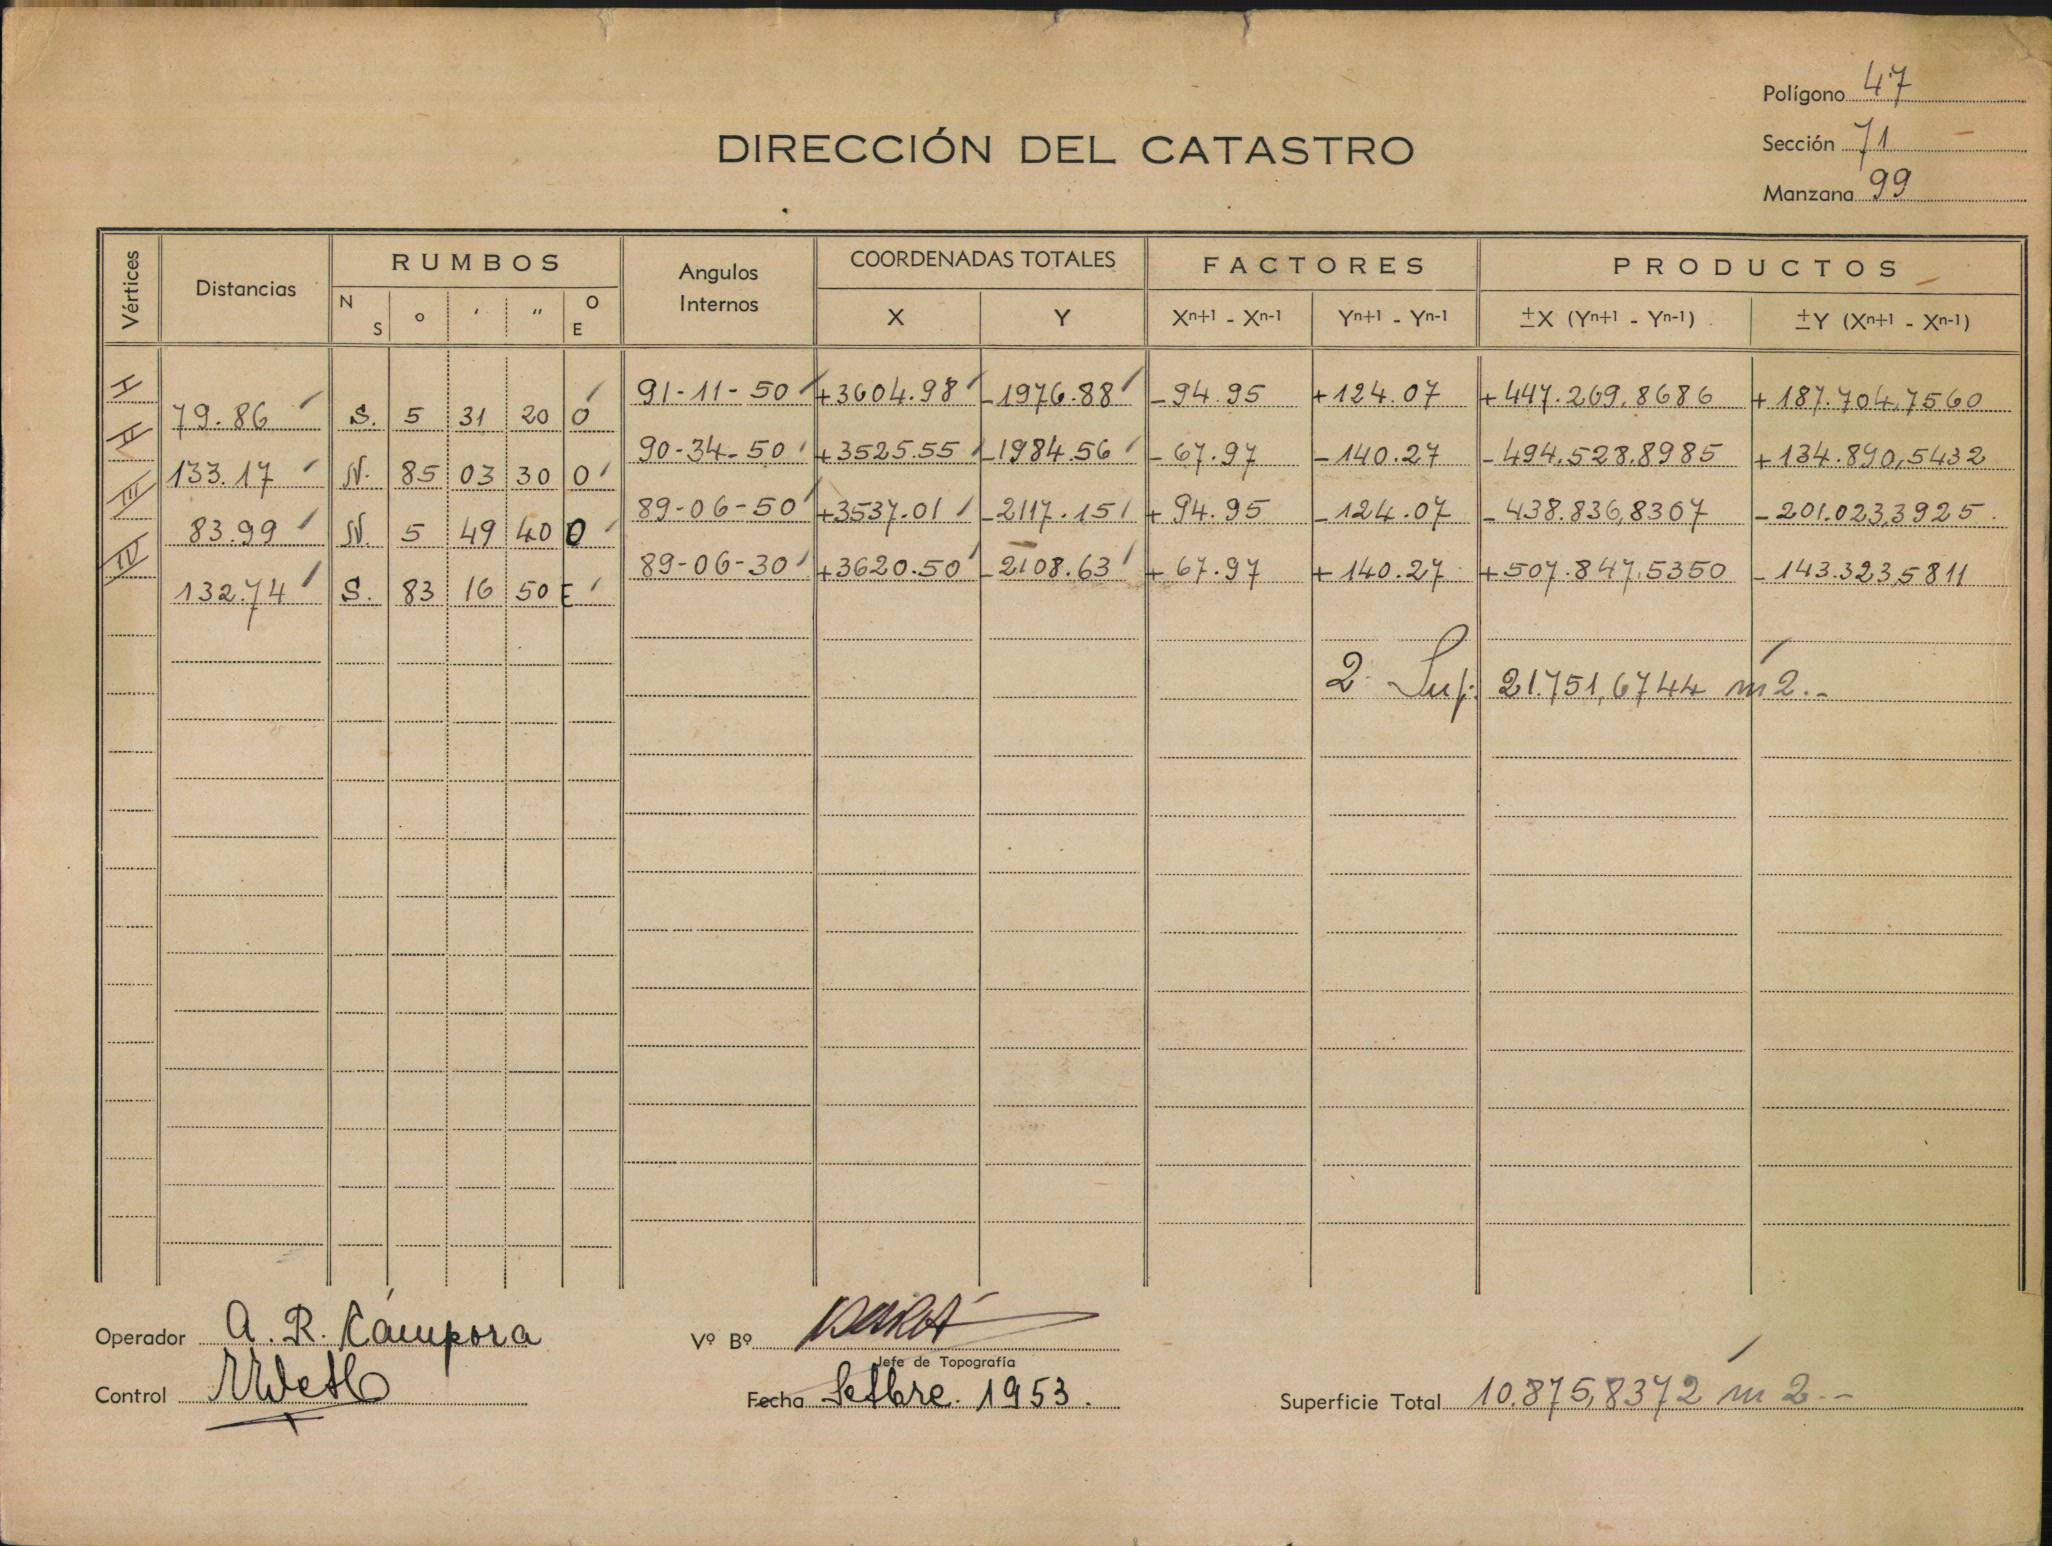 Polígono 47
Sección 71 -
Manzana 99
DIRECCIÓN DEL CATASTRO
Vértices Distancias RUMBOS Angulos Internos COORDENADAS TOTALES FACTORES PRODUCTOS
N S o ' " O E X Y Xn+1 - Xn-1 Yn+1 - Yn-1 ±X (Yn+1 - Yn-1) ±Y (Xn+1 - Xn-1)
I 91-11-50 +3604.98 -1976.88 -94.95 +124.07 +447.269,8686 +187.704,7560
79.86 S. 5 31 20 O
II 90-34-50 +3525.55 -1984.56 -67.97 -140.27 -494.528,8985 +134.890,5432
133.17 N. 85 03 30 O
III 89-06-50 +3537.01 -2117.15 +94.95 -124.07 -438.836,8307 -201.023,3925
83.99 N. 5 49 40 O
IV 89-06-30 +3620.50 -2108.63 +67.97 +140.27 +507.847,5350 -143.323,5811
132.74 S. 83 16 50 E
2 Sup: 21.751,6744 m2.-
Operador A. R. Cámpora
Vº Bº
Jefe de Topografía
Control
Fecha Setbre. 1953.
Superficie Total 10.875,8372 m2.-